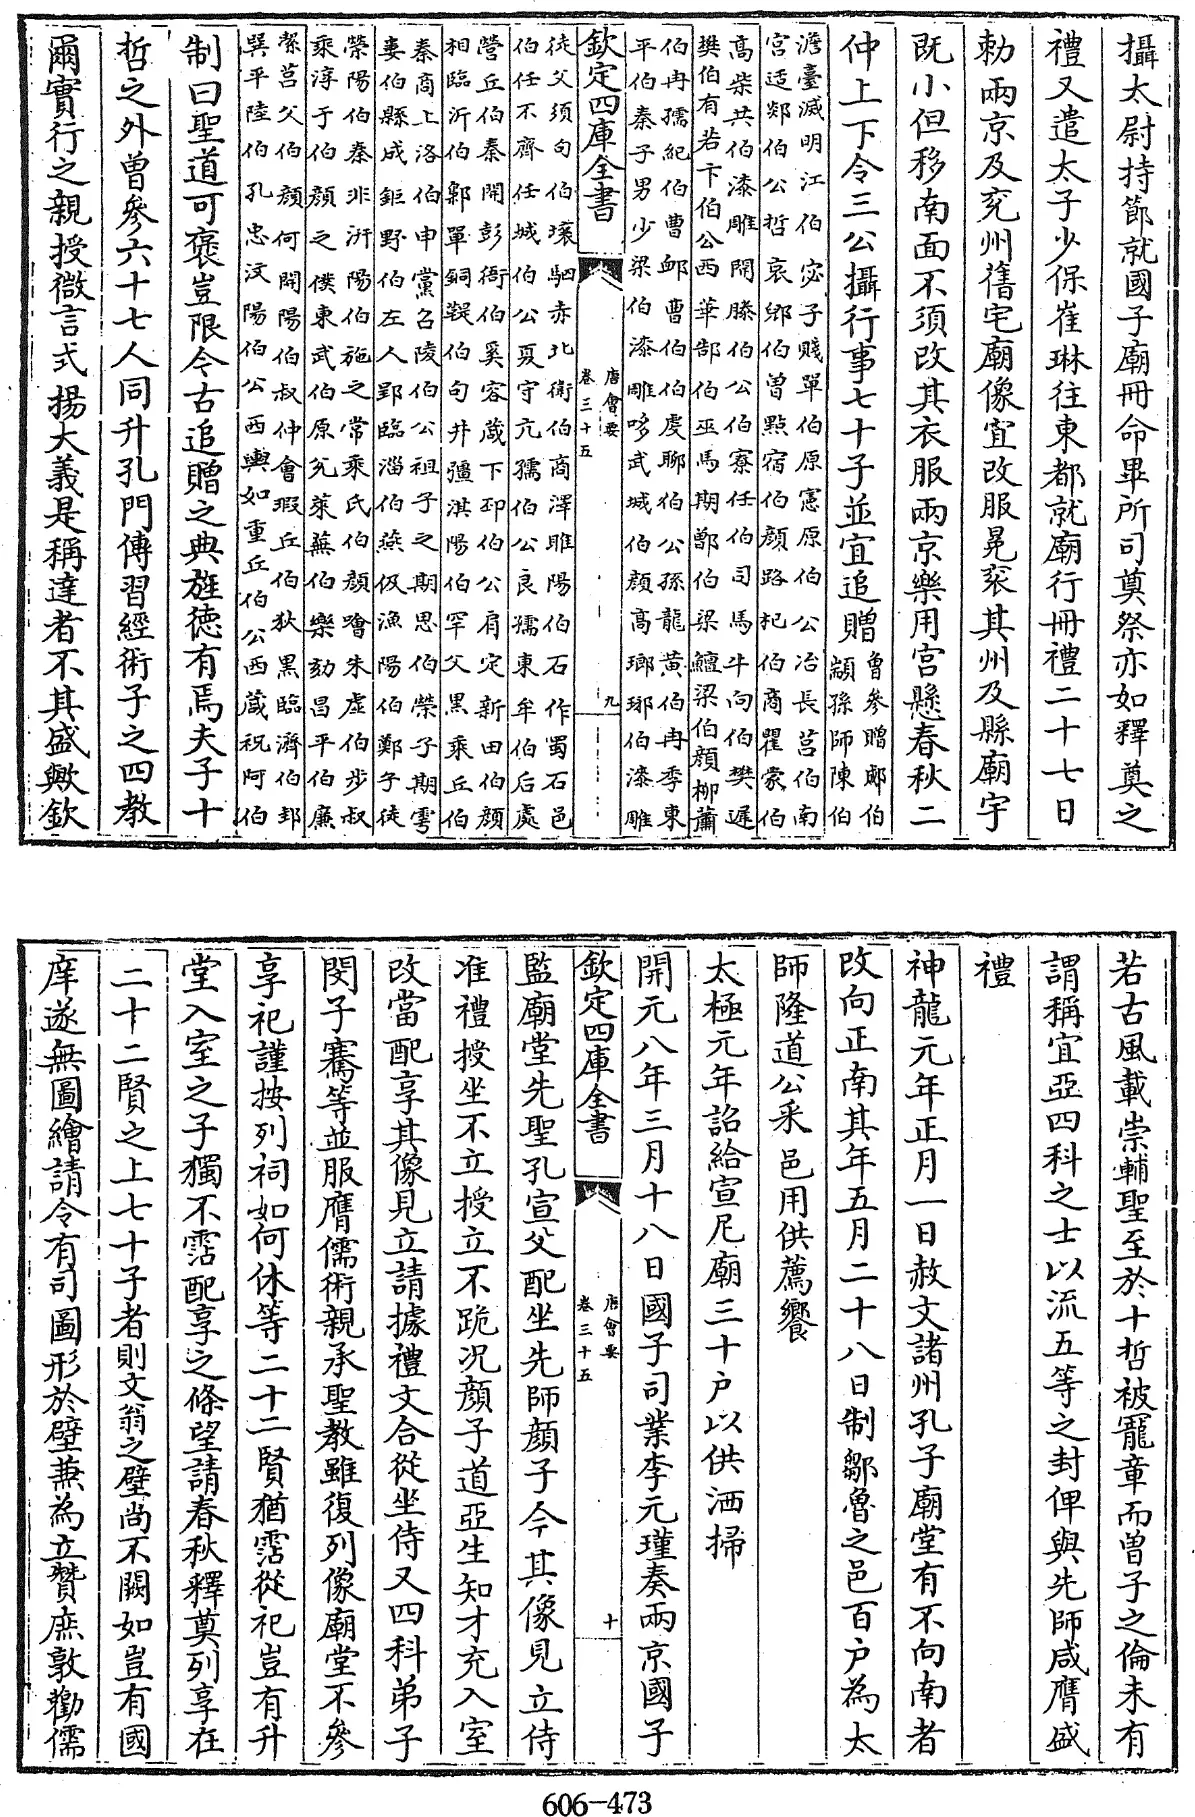 攝太尉持節就國子廟冊命畢所司奠祭亦如釋奠之
禮又遣太子少保崔琳往東都就廟行冊禮二十七日
勅兩京及兖州舊宅廟像宜改服冕衮其州及縣廟宇
既小但移南面不須改其衣服兩京樂用宫懸春秋二
仲上下令三公攝行事七十子並宜追贈
曾參贈郕伯
顓孫師陳伯
澹臺滅明江伯宓子賤單伯原憲原伯公冶長莒伯南
宫适郯伯公哲哀郳伯曾點宿伯顏路杞伯商瞿蒙伯
高柴共伯漆雕開滕伯公伯寮任伯司馬牛向伯樊遲
樊伯有若卞伯公西華郜伯巫馬期鄫伯梁鱣梁伯顏柳蕭
伯冉孺紀伯曹卹曹伯伯虔聊伯公孫龍黄伯冉季東
平伯秦子男少梁伯漆雕哆武城伯顏高瑯琊伯漆雕
欽定四庫全書
唐會要
卷三十五
九
徒父須句伯壤駟赤北衛伯商澤睢陽伯石作蜀石邑
伯任不齊任城伯公夏守亢孺伯公良孺東牟伯后處
營丘伯秦開彭衙伯奚容蒧下邳伯公肩定新田伯顏
相臨沂伯鄡單銅鞮伯句井彊淇陽伯罕父黑乘丘伯
秦商上洛伯申黨召陵伯公祖子之期思伯榮子期雩
婁伯縣成鉅野伯左人郢臨淄伯燕伋漁陽伯鄭子徒
滎陽伯秦非汧陽伯施之常乘氏伯顏噲朱虚伯步叔
乘淳于伯顏之僕東武伯原亢萊蕪伯樂欬昌平伯廉
絜莒父伯顏何開陽伯叔仲會瑕丘伯狄黑臨濟伯邽
巽平陸伯孔忠汶陽伯公西輿如重丘伯公西蒧祝阿伯
制曰聖道可褒豈限今古追贈之典旌徳有焉夫子十
哲之外曾參六十七人同升孔門傳習經術子之四教
爾實行之親授微言式揚大義是稱達者不其盛歟欽
若古風載崇輔聖至於十哲被寵章而曾子之倫未有
謂稱宜亞四科之士以流五等之封俾與先師咸膺盛
禮
神龍元年正月一日赦文諸州孔子廟堂有不向南者
改向正南其年五月二十八日制鄒魯之邑百户為太
師隆道公采邑用供薦饗
太極元年詔給宣尼廟三十户以供洒掃
開元八年三月十八日國子司業李元瓘奏兩京國子
欽定四庫全書
唐會要
卷三十五
十
監廟堂先聖孔宣父配坐先師顏子今其像見立侍
准禮授坐不立授立不跪况顏子道亞生知才充入室
改當配享其像見立請據禮文合從坐侍又四科弟子
閔子騫等並服膺儒術親承聖教雖復列像廟堂不參
享祀謹按列祠如何休等二十二賢猶霑從祀豈有升
堂入室之子獨不霑配享之條望請春秋釋奠列享在
二十二賢之上七十子者則文翁之壁尚不闕如豈有國
庠遂無圖繪請令有司圖形於壁兼為立贊庶敦勸儒
606-473